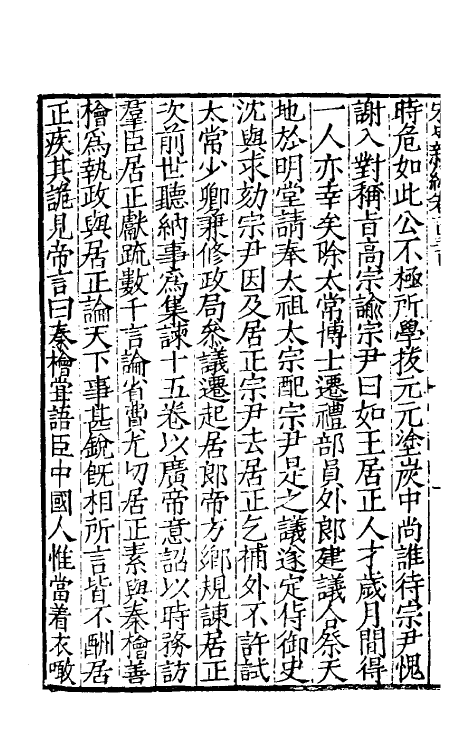 時危如此公不極所學拔元元塗炭中尚誰待宗尹愧
謝入對稱旨高宗諭宗尹曰如王居正人才歲月間得
一人亦幸矣除太常博士遷禮部員外郎建議合祭天
地於明堂請奉太祖太宗配宗尹是之議遂定侍御史
沈與求劾宗尹因及居正宗尹去居正乞補外不許試
太常少卿兼修政局參議遷起居郎帝方鄉規諫居正
次前世聽納事爲集諫十五卷以廣帝意詔以時務訪
羣臣居正獻疏數千言論省費尤切居正素與秦檜善
檜爲執政與居正論天下事甚銳旣相所言皆不酬居
正疾其詭見帝言曰秦檜嘗語臣中國人惟當着衣噉